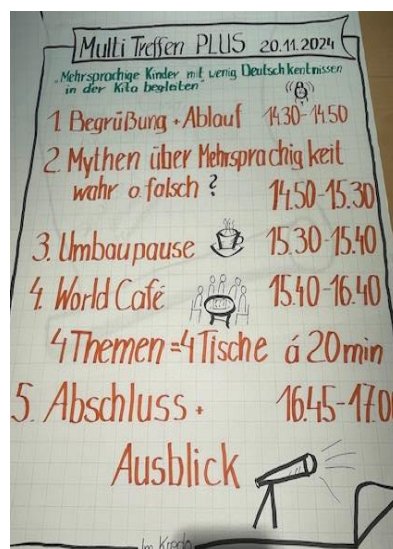 Multi Treffen PLUS 20.11.2024
"Mehrsprachige Kinder mit wenig Deutschkentnissen
in der Kita begleiten"
1. Begrüßung + Ablauf 14.30-14.50
2. Mythen über Mehrsprachigkeit
wahr o. falsch? 14.50-15.30
3. Umbaupause 15.30-15.40
4. World Café 15.40-16.40
4 Themen = 4 Tische á 20min
5. Abschluss + 16.45-17.0
Ausblick
Im